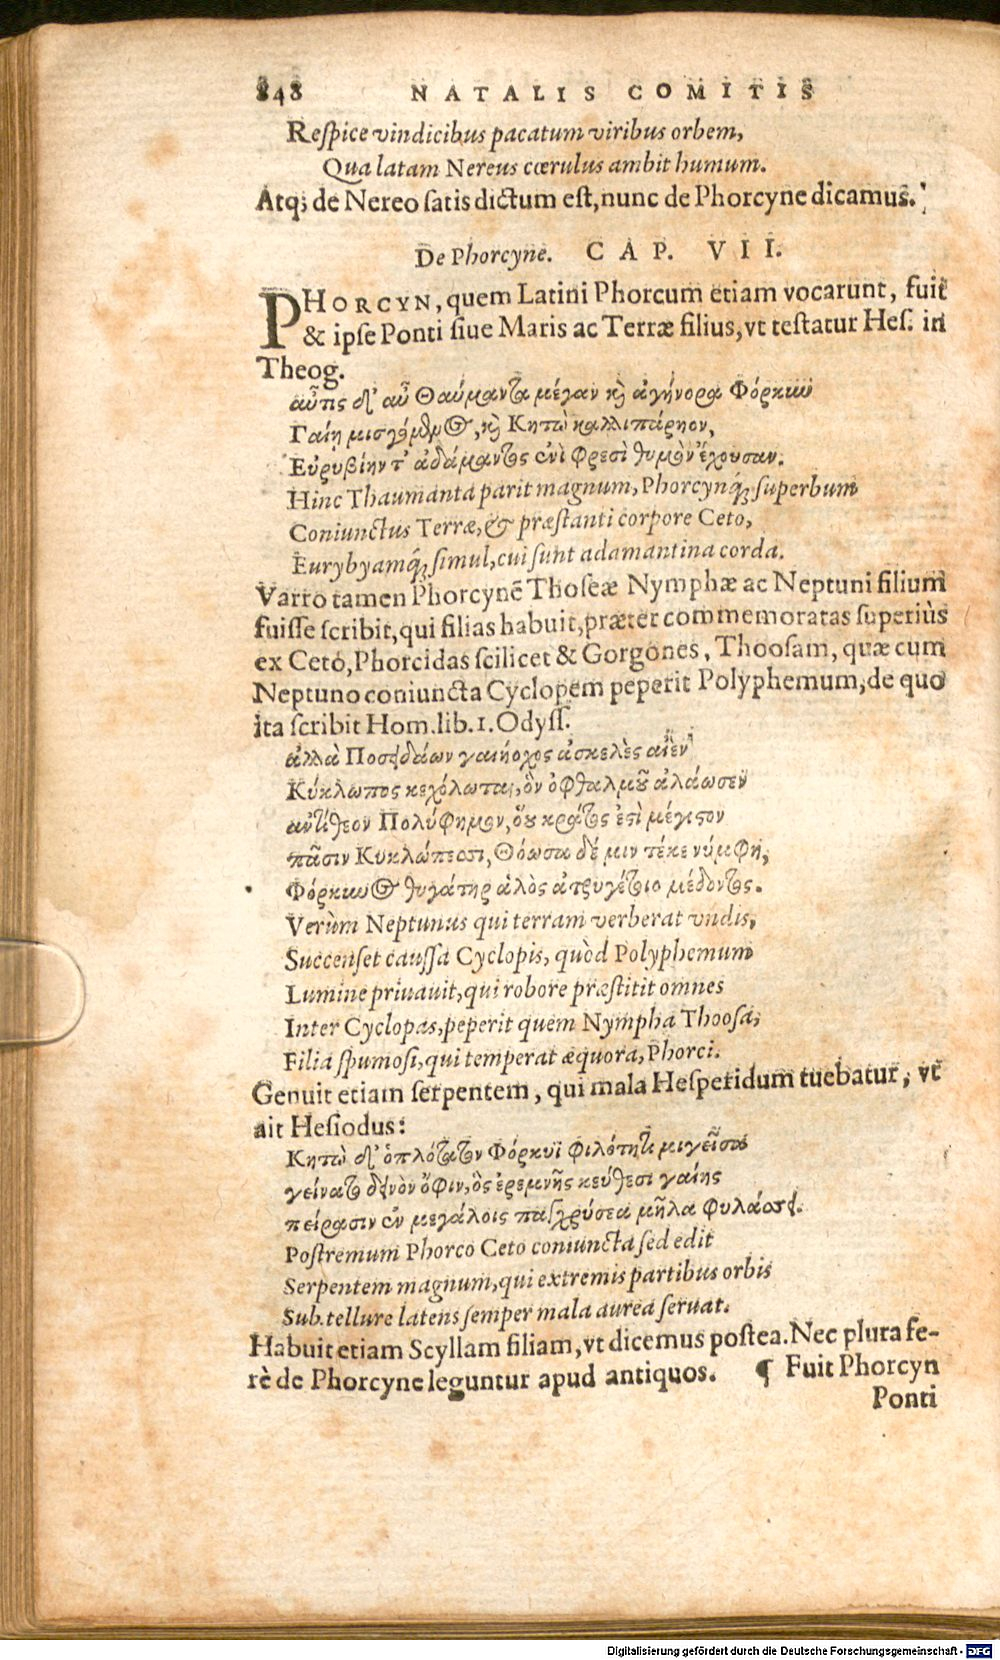 848 NATALIS COMITIS
Respice vindicibus pacatum viribus orbem,
Qua latam Nereus cœrulus ambit humum.
Atq; de Nereo satis dictum est, nunc de Phorcyne dicamus.
De Phorcyne. CAP. VII.
PHORCYN, quem Latini Phorcum etiam vocarunt, fuit
& ipse Ponti siue Maris ac Terræ filius, vt testatur Hes. in
Theog.
αὖτις δ' αὖ Θαύμαντα μέγαν κὶ ἀγήνορα Φόρκυν
Γαίῃ μισγόμενος, κὶ Κητὼ καλλιπάρηον,
Εὐρυβίην τ' ἀδάμαντος ἐνὶ φρεσὶ θυμὸν ἔχουσαν.
Hinc Thaumanta parit magnum, Phorcynq́; superbum
Coniunctus Terræ, & præstanti corpore Ceto,
Eurybyamq́; simul, cui sunt adamantina corda.
Varro tamen Phorcynē Thoseæ Nymphæ ac Neptuni filium
fuisse scribit, qui filias habuit, præter commemoratas superiùs
ex Ceto, Phorcidas scilicet & Gorgones, Thoosam, quæ cum
Neptuno coniuncta Cyclopem peperit Polyphemum, de quo
ita scribit Hom. lib. 1. Odyss.
ἀλλὰ Ποσειδάων γαιήοχος ἀσκελὲς αἰὲν
Κύκλωπος κεχόλωται, ὃν ὀφθαλμοῦ ἀλάωσεν
ἀντίθεον Πολύφημον, ὅου κράτος ἐστὶ μέγιστον
πᾶσιν Κυκλώπεσσι, Θόωσα δέ μιν τέκε νύμφη,
Φόρκυνος θυγάτηρ ἁλὸς ἀτρυγέτοιο μέδοντος.
Verùm Neptunus qui terram verberat vndis,
Succenset caussa Cyclopis, quòd Polyphemum
Lumine priuauit, qui robore præstitit omnes
Inter Cyclopas, peperit quem Nympha Thoosa,
Filia spumosi, qui temperat æquora, Phorci.
Genuit etiam serpentem, qui mala Hesperidum tuebatur, vt
ait Hesiodus:
Κητὼ δ' ὁπλότατον Φόρκυϊ φιλότητι μιγεῖσα
γείνατο δεινὸν ὄφιν, ὃς ἐρεμνῆς κεύθεσι γαίης
πείρασιν ἐν μεγάλοις παγχρύσεα μῆλα φυλάσσει.
Postremum Phorco Ceto coniuncta sed edit
Serpentem magnum, qui extremis partibus orbis
Sub tellure latens semper mala aurea seruat.
Habuit etiam Scyllam filiam, vt dicemus postea. Nec plura fe-
rè de Phorcyne leguntur apud antiquos. ¶ Fuit Phorcyn
Ponti
Digitalisierung gefördert durch die Deutsche Forschungsgemeinschaft - DFG